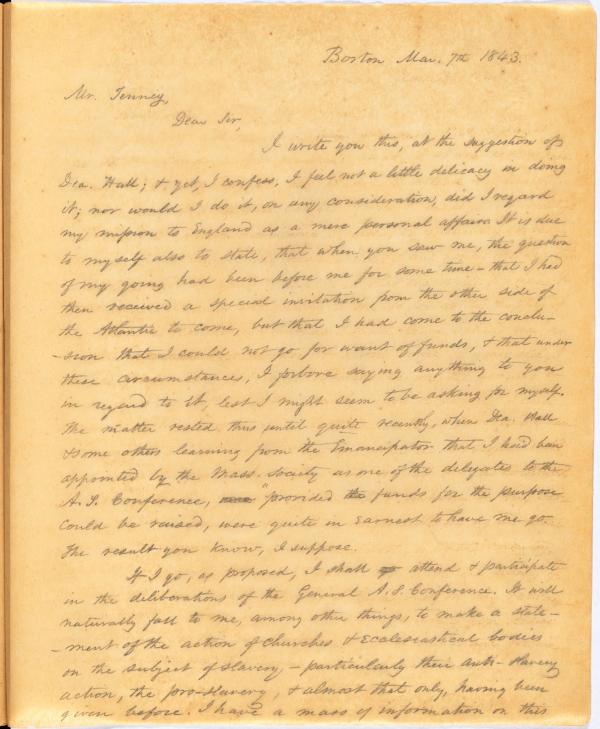 Boston Mar. 7th 1843.
Mr. Tenney,
Dear Sir,
I write you this, at the suggestion of
Dea. Hall; & yet, I confess, I feel not a little delicacy in doing
it; nor would I do it, on any consideration, did I regard
my mission to England as a mere personal affair. It is due
to myself also to state, that when you saw me, the question
of my going had been before me for some time – that I had
then received a special invitation from the other side of
the Atlantic to come, but that I had come to the conclu-
-sion that I could not go for want of funds, & that under
these circumstances, I forbore saying anything to you
in regard to it, lest I might seem to be asking for myself.
The matter rested thus until quite recently, when Dea. Hall
& some others learning from the Emancipator that I had been
appointed by the Mass. Society as one of the delegates to the
A.S. Conference, "provided the funds for the purpose
could be raised, were quite in earnest to have me go.
The result you know, I suppose.
If I go, as proposed, I shall attend & participate
in the deliberations of the General A.S. Conference. It will
naturally fall to me, among other things, to make a state-
-ment of the action of Churches & Ecclesiastical bodies
on the subject of slavery, – particularly their anti-slavery
action, the pro-slavery, & almost that only, having been
given before. I have a mass of information on this